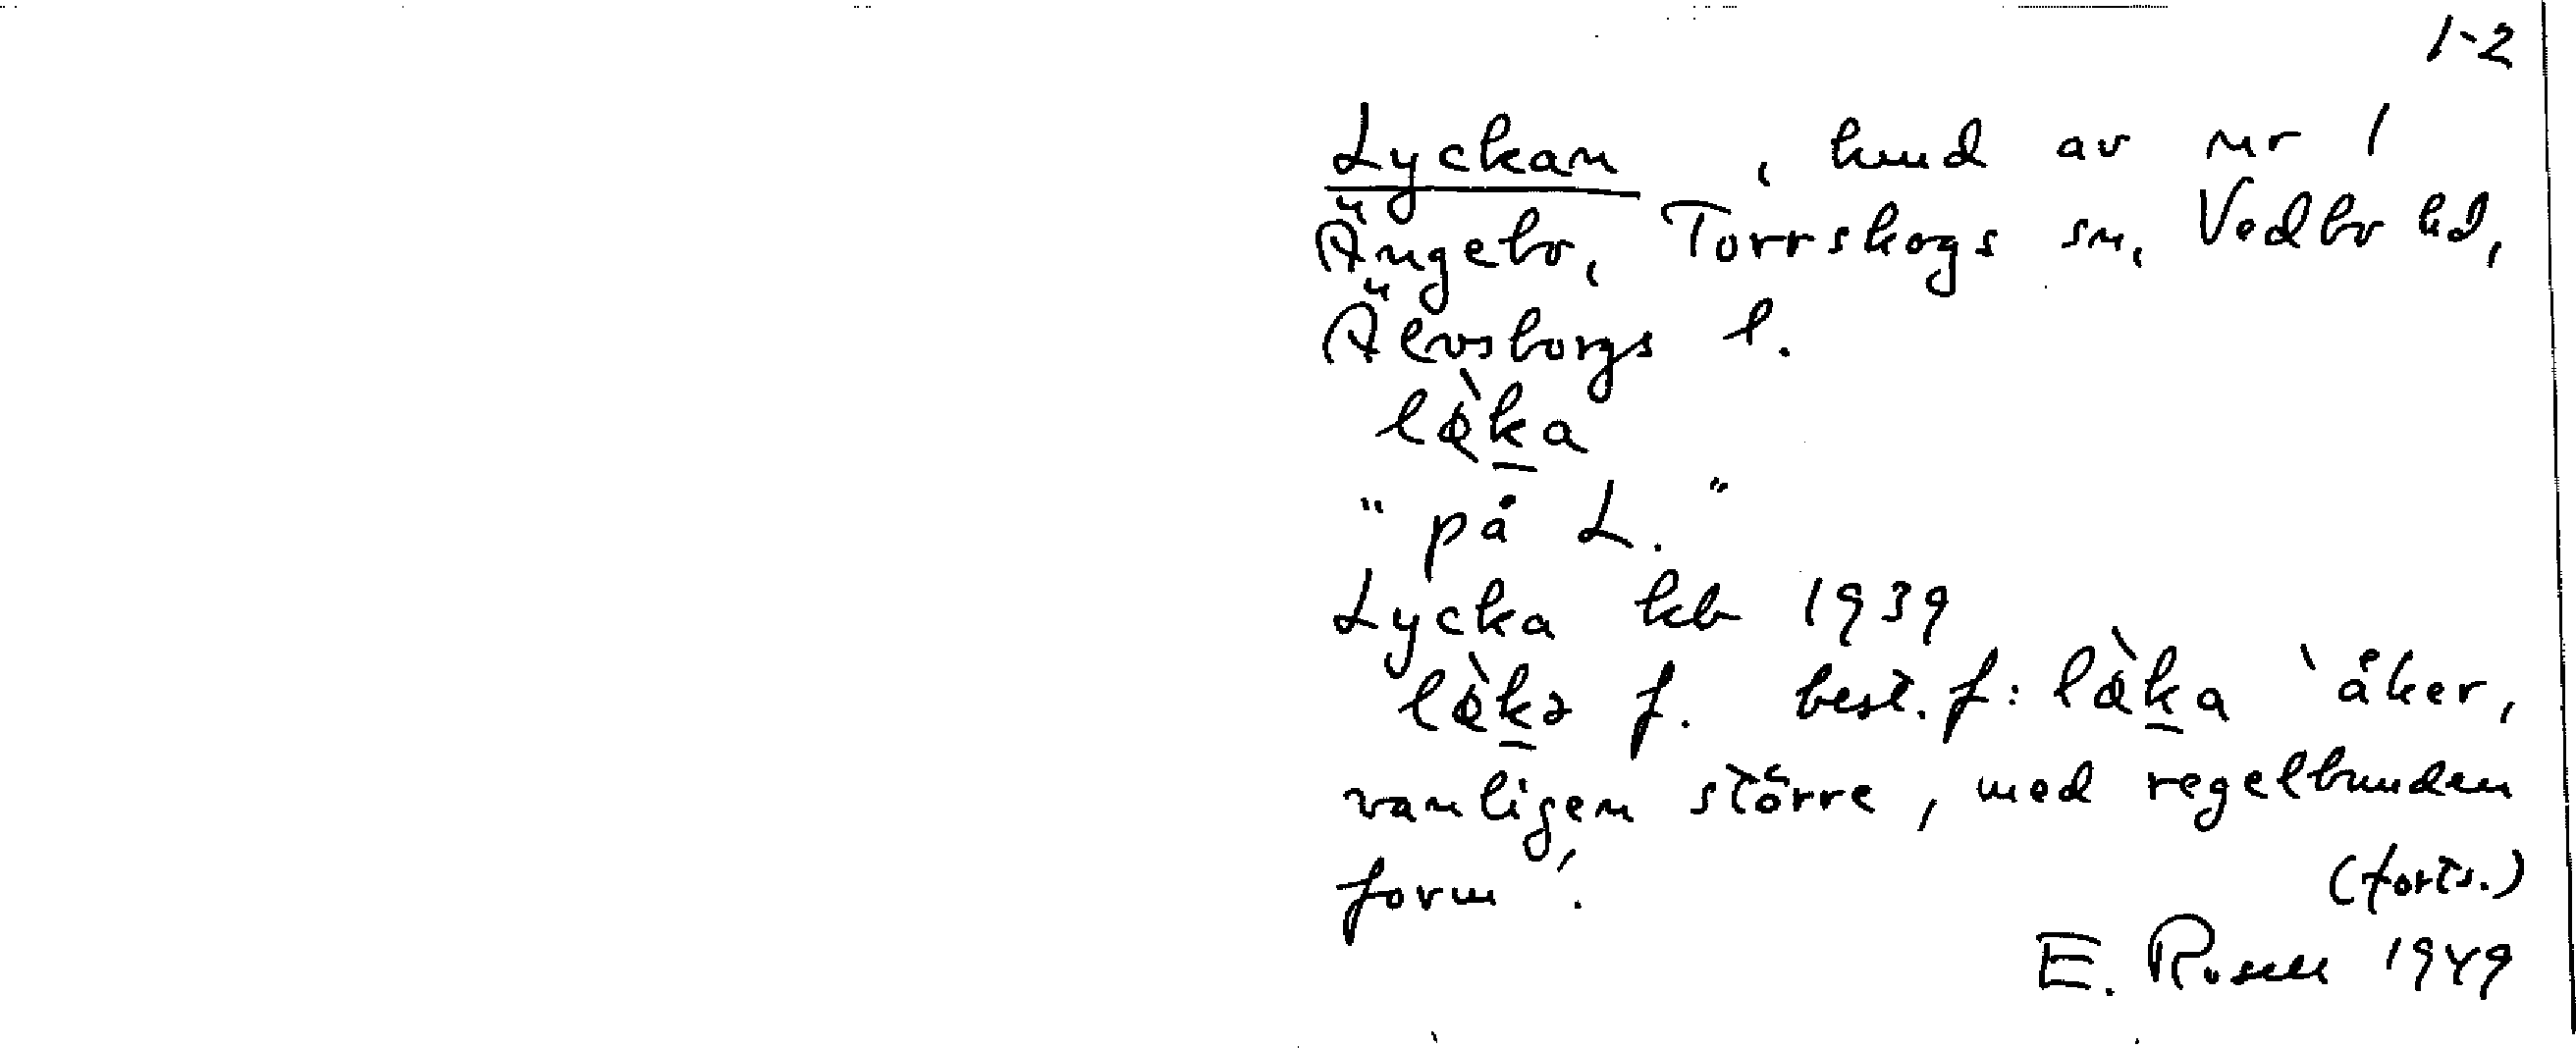 1-2
Lyckan, hmd av nr 1
Ängebo, Torrskogs sn, Vedbo hd,
Älvsborgs l.
lø̀ka
"på L."
Lycka kb 1939
lø̀kə f. best. f: lø̀ka `åker,
vanligen större, med regelbunden
form´.
(forts.)
E. Rosell 1949